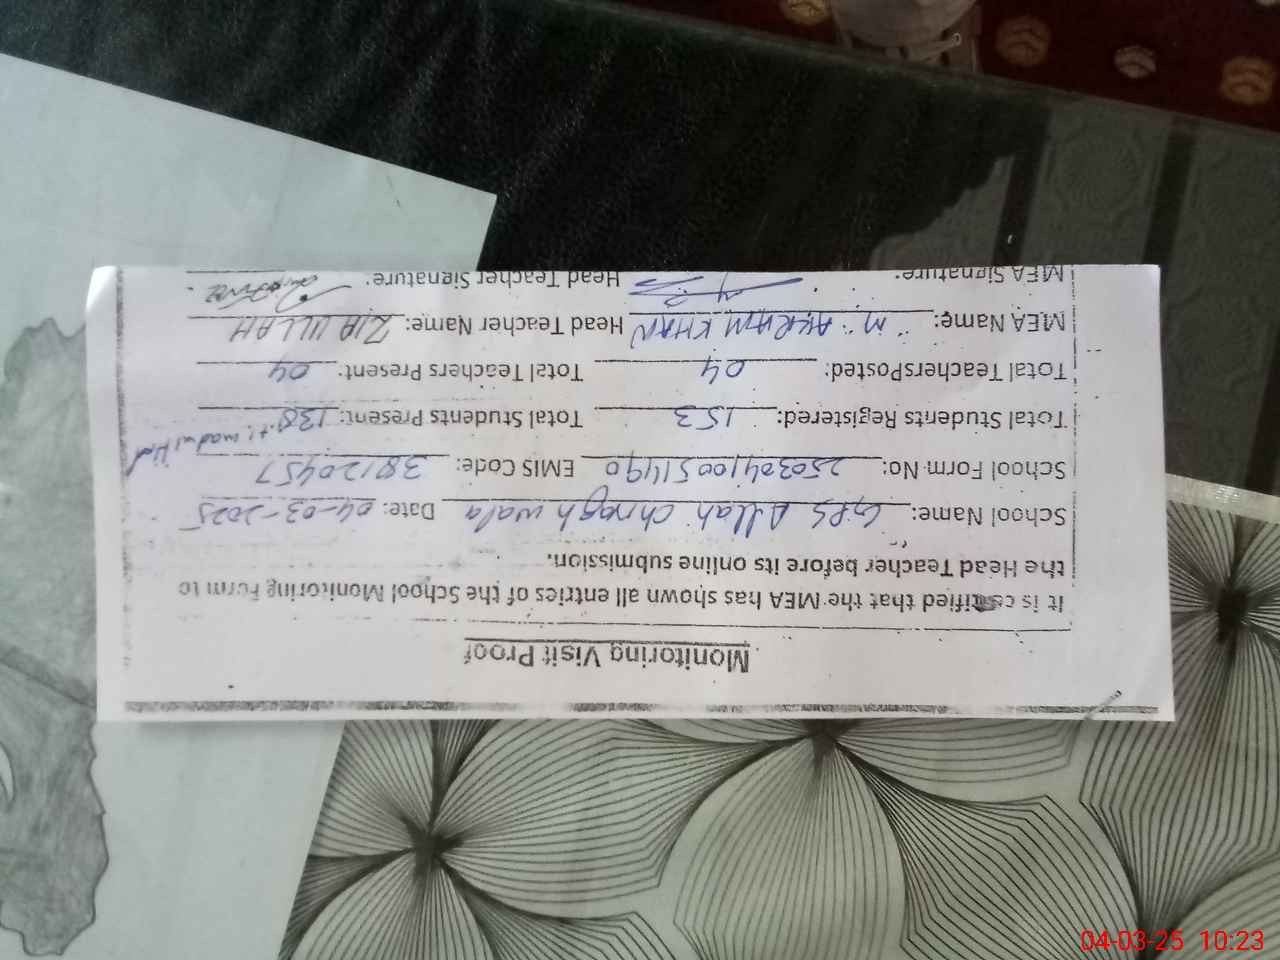 Monitoring Visit Proof
It is certified that the MEA has shown all entries of the School Monitoring Form to
the Head Teacher before its online submission.
School Name: GPS Allah chragh wala Date: 04-03-2025
School Form No: 25030410051490 EMIS Code: 38120457
Total Students Registered: 153 Total Students Present: 138
Total TeachersPosted: 04 Total Teachers Present: 04
MEA Name: M. AKRAM KHAN Head Teacher Name: ZIA ULLAH
MEA Signature: Head Teacher Signature:
04-03-25 10:23